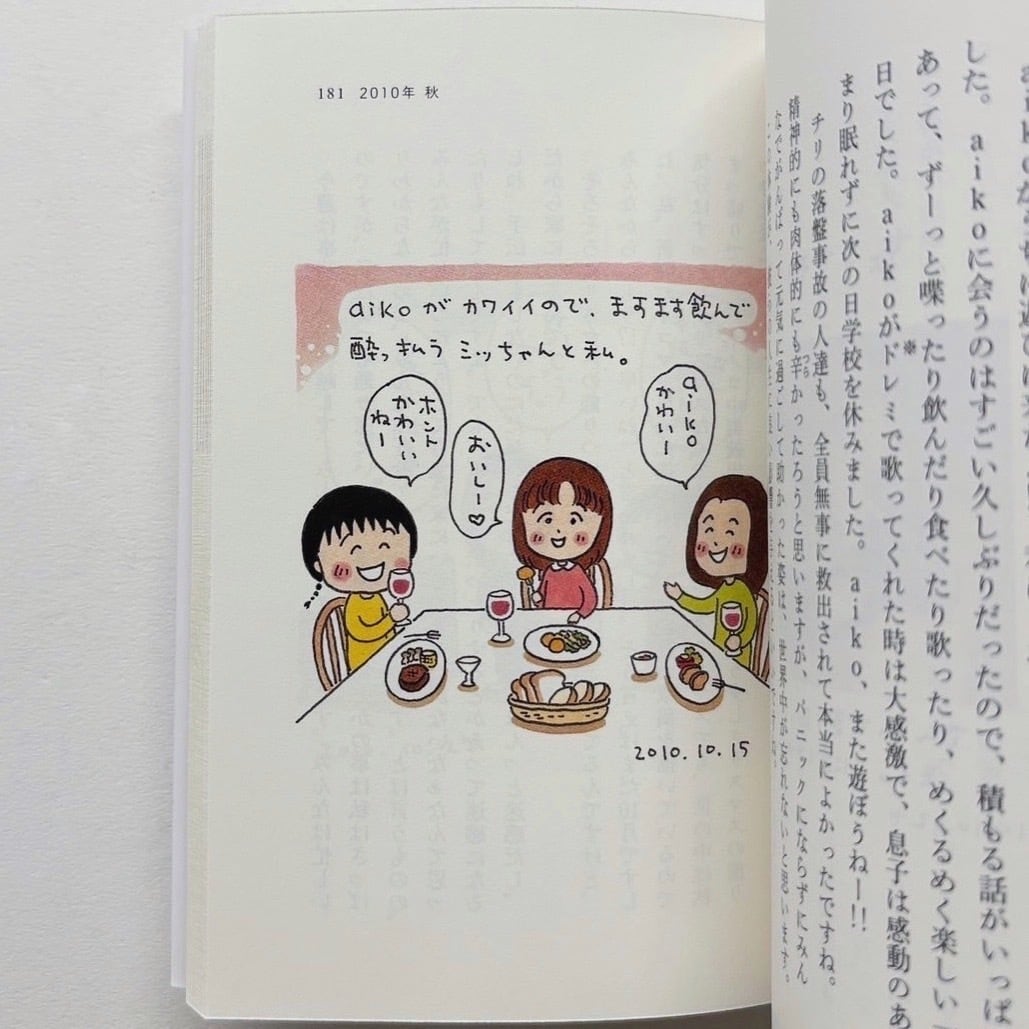 した。aikoに会うのはすごい久しぶりだったので、積もる話がいっぱ
あって、ずーっと喋ったり飲んだり食べたり歌ったり、めくるめく楽しい
日でした。aikoがドレミ※で歌ってくれた時は大感激で、息子は感動のあ
まり眠れずに次の日学校を休みました。aiko、また遊ぼうねー!!
チリの落盤事故の人達も、全員無事に救出されて本当によかったですね。
精神的にも肉体的にも辛つらかったろうと思いますが、パニックにならずにみん
なでがんばって元気に過ごして助かった姿は、世界中が忘れないと思います。
181 2010年 秋
aikoが カワイイので、ますます飲んで
酔っ払う ミッちゃんと私。
aiko
かわいー
おいしー♡
ホント
かわいい
ねー
2010.10.15